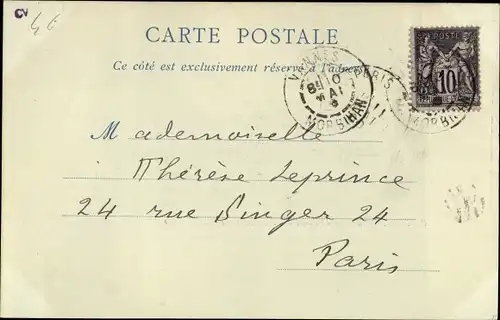 2
4€
CARTE POSTALE
Ce côté est exclusivement réservé à l'adresse
VANNES
MORBIHAN
MAI
10
Mademoiselle
Thérèse Leprince
24 rue Singer 24
Paris